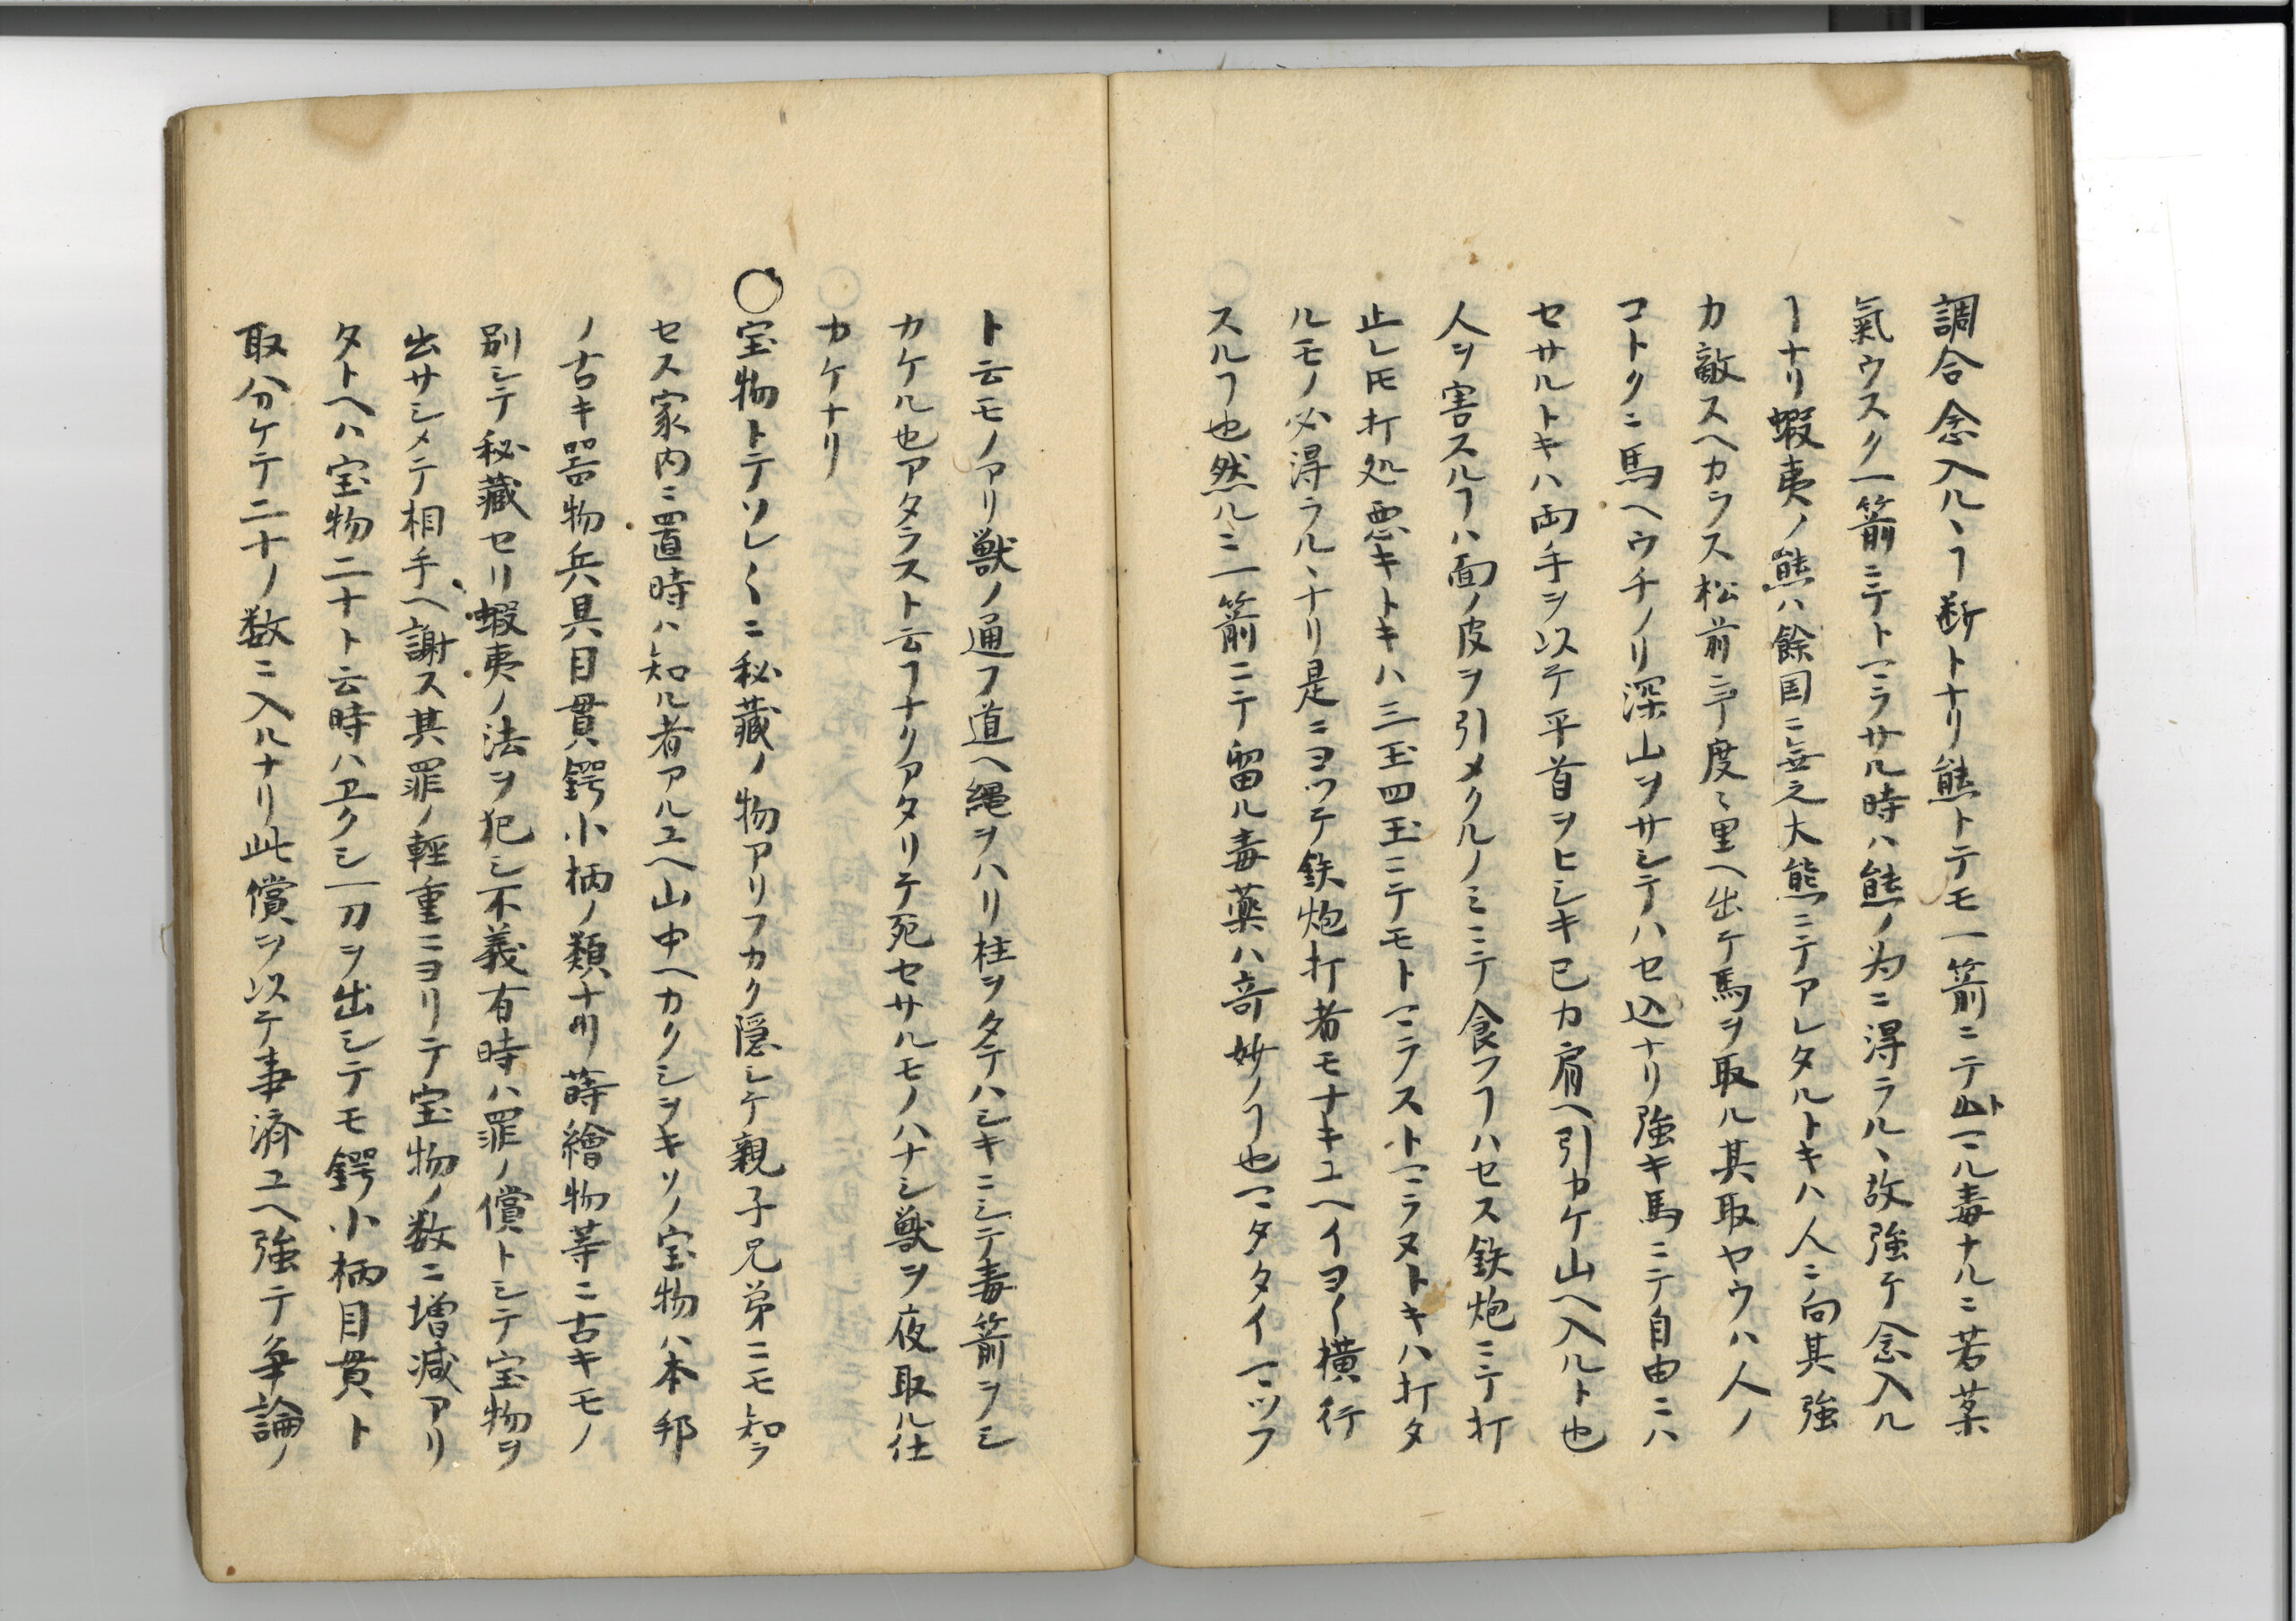 調合念入ル、ヿ断トナリ熊トテモ一箭ニテ止マル毒ナルニ若薬
氣ウスク一箭ニテトマラサル時ハ熊ノ為ニ得ラル、故強テ念入ル
ヿナリ蝦夷ノ熊ハ餘国ニ無之大熊ニテアレタルトキハ人ニ向其強
カ敵スヘカラス松前ニテ度々里ヘ出テ馬ヲ取ル其取ヤウハ人ノ
コトクニ馬ヘウチノリ深山ヲサシテハセ込ナリ強キ馬ニテ自由ニハ
セサルトキハ両手ヲ以テ平首ヲヒシキ己カ肩ヘ引カケ山ヘ入ルト也
人ヲ害スルヿハ面ノ皮ヲ引メクルノミニテ食フヿハセス鉄炮ニテ打
止レ𪜈打処悪キトキハ三玉四玉ニテモトマラストマラヌトキハ打タ
ルモノ必得ラル、ナリ是ニヨツテ鉄炮打者モナキユヘイヨ〱横行
スルヿ也然ルニ一箭ニテ留ル毒薬ハ奇妙ノヿ也マタタイマツフ
ト云モノアリ獣ノ通フ道ヘ縄ヲハリ柱ヲタテハシキニシテ毒箭ヲシ
カケル也アタラスト云ヿナクアタリテ死セサルモノハナシ獣ヲ夜取ル仕
カケナリ
〇宝物トテソレ〱ニ秘藏ノ物アリフカク隠シテ親子兄弟ニモ知ラ
セス家内ニ置時ハ知ル者アルユヘ山中ヘカクシヲキソノ宝物ハ本邦
ノ古キ器物兵具目貫鍔小柄ノ類ナリ蒔繪物等ニ古キモノ
別シテ秘藏セリ蝦夷ノ法ヲ犯シ不義有時ハ罪ノ償トシテ宝物ヲ
出サシメテ相手ヘ謝ス其罪ノ軽重ニヨリテ宝物ノ数ニ増減アリ
タトヘハ宝物二十ト云時ハ早クシ一刀ヲ出シテモ鍔小柄目貫ト
取分ケテ二十ノ数ニ入ルナリ此償ヲ以テ事済ユヘ強テ争論ノ